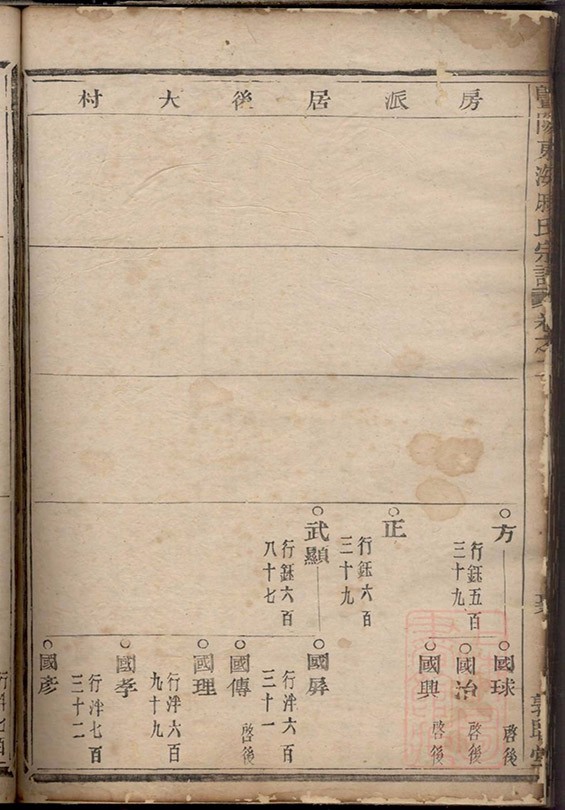 房派居後大村
東海
氏宗譜
卷之
方
行鈺五百
三十九
正
行鈺六百
三十九
武顯
行鈺六百
八十七
國球
啓後
國治
啓後
國興
啓後
國屏
行泮六百
三十一
國傳
啓後
國理
行泮六百
九十九
國孝
行泮七百
三十二
國彥